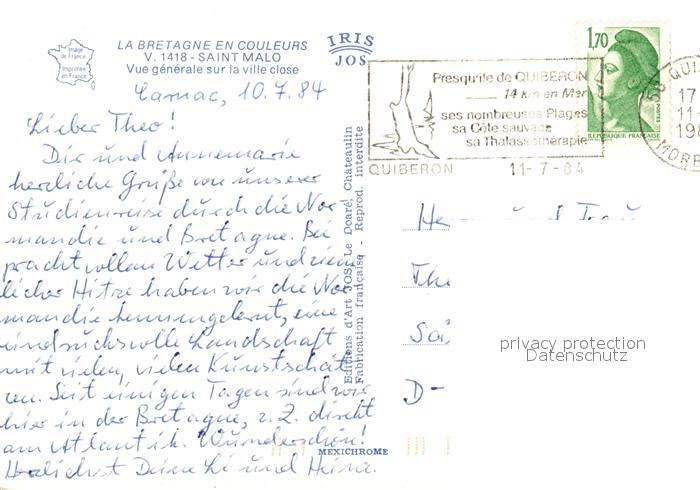 Image
de France
Imprimée
en France
LA BRETAGNE EN COULEURS
V. 1418 - SAINT MALO
Vue générale sur la ville close
IRIS
JOS
Carnac, 10.7.84
Lieber Theo!
Dir und Annemarie
herzliche Grüße von unserer
Studienreise durch die Nor
mandie und Bretagne. Bei
prachtvollem Wetter und ziem
licher Hitze haben wir die Nor
mandie kennengelernt, eine
eindrucksvolle Landschaft
mit vielen, vielen Kunstschät
zen. Seit einigen Tagen sind wir
hier in der Bretagne, z. Z. direkt
am Atlantik. Wunderschön!
Herzlichst Deine Li und Heinz.
Editions d'Art JOS Le Doaré, Châteaulin
Fabrication française - Reprod. interdite
MEXICHROME
Presqu'île de QUIBERON
14 km en Mer
ses nombreuses Plages
sa Côte sauvage
sa Thalassothérapie
QUIBERON
11-7-84
1,70
POSTES
REPUBLIQUE FRANÇAISE
56 QUI
17
11-
198
MORB
Herrn und Frau
The
Sai
D-
privacy protection
Datenschutz